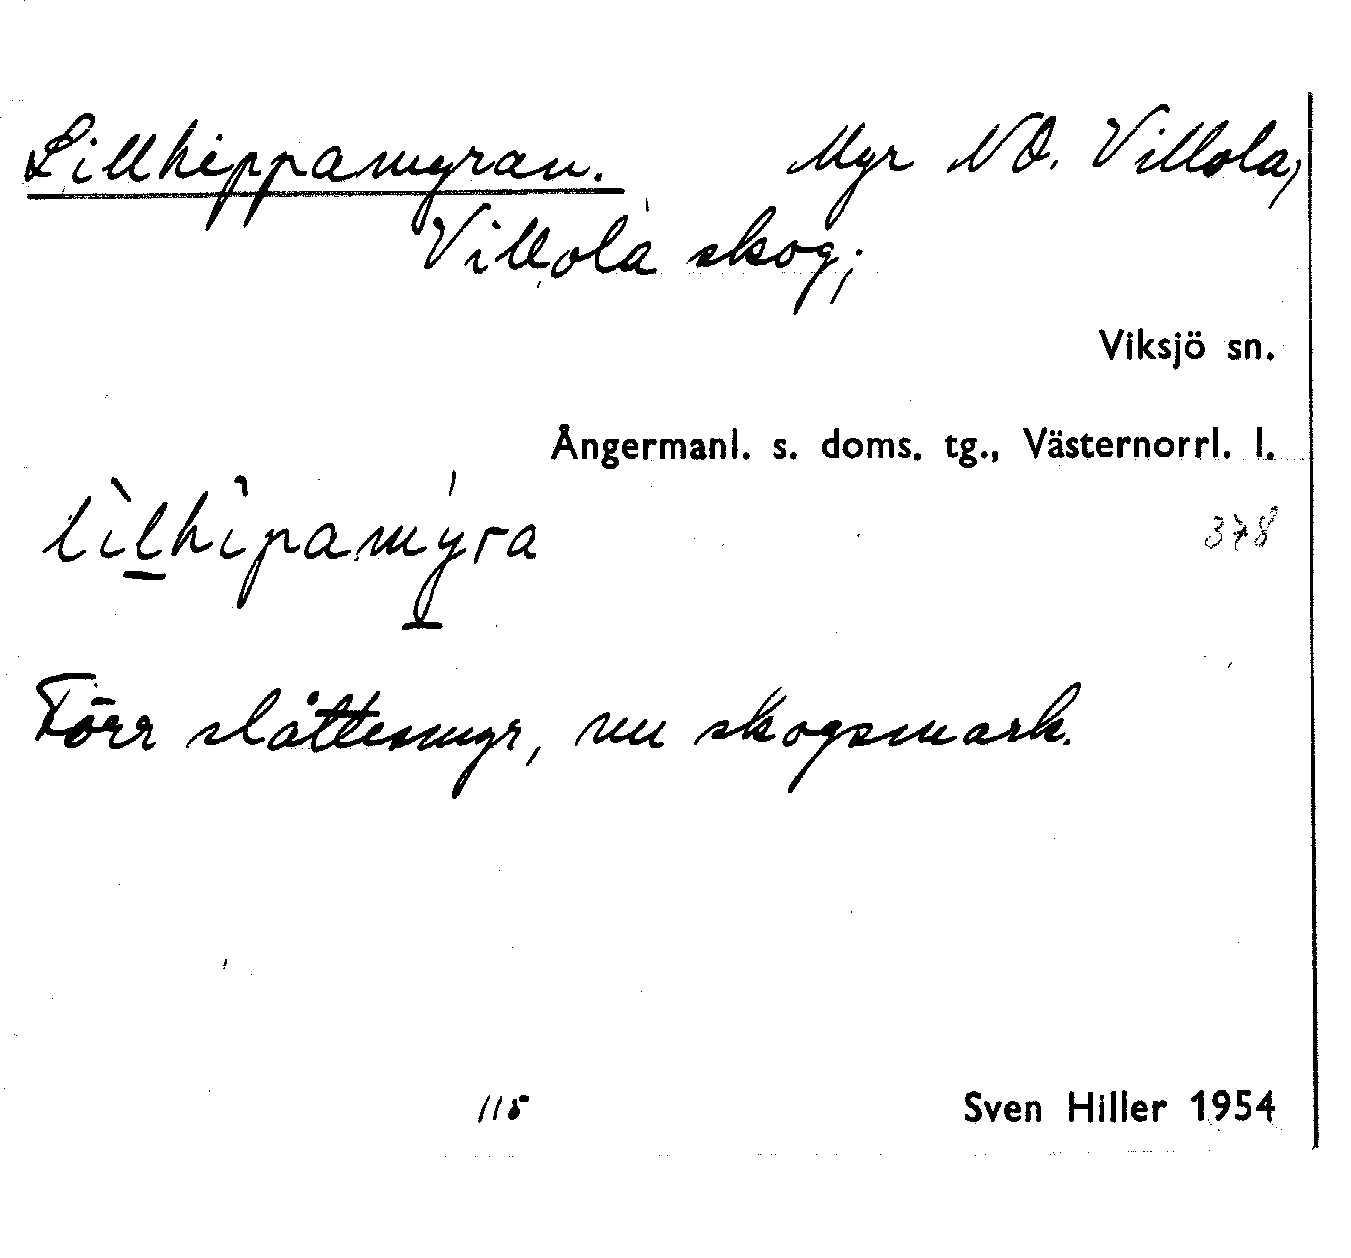 Lillhippamyran. Myr NO. Villola,
Villola skog;
Viksjö sn.
Ångermanl. s. doms. tg., Västernorrl. l.
lìlhìpamýra 378
Förr slåttesmyr, nu skogsmark.
115 Sven Hiller 1954